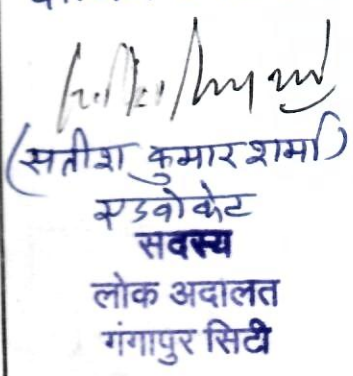 (सतीश कुमार शर्मा)
एडवोकेट
सदस्य
लोक अदालत
गंगापुर सिटी